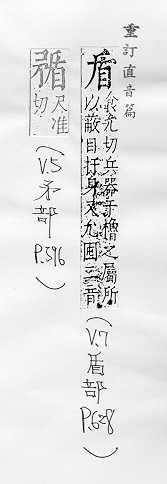 重訂直音篇
盾
食允切兵器干櫓之屬所
以蔽目扞身又允囤三音
(V.7 盾部 P.628)
尺准
切
(V.5 矛部 P.596)